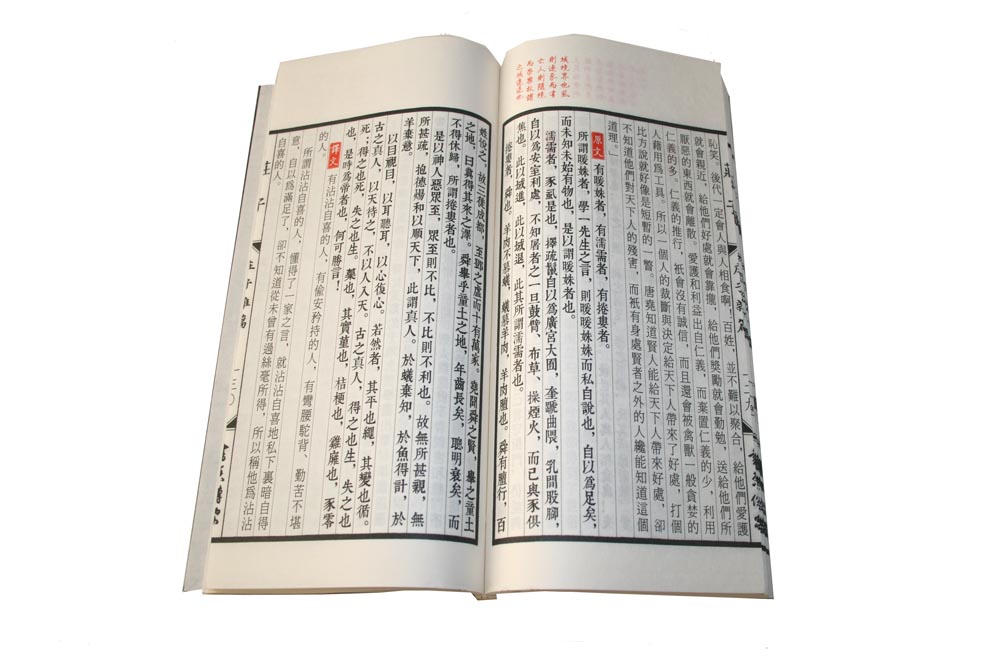 域境界也豕
則逐豕而害
亡人則隨境
而榮樂故謂
之域進退也
恥笑。後代一定會人與人相食啊。百姓，並不難以聚合，給他們愛護
就會親近，給他們好處就會靠攏，給他們獎勵就會勤勉，送給他們所
厭惡的東西就會離散。愛護和利益出自仁義，而棄置仁義的少，利用
仁義的多。仁義的推行，祇會沒有誠信，而且還會被禽獸一般貪婪的
人藉用爲工具。所以一個人的裁斷與決定給天下人帶來了好處，打個
比方說就好像是短暫的一瞥。唐堯知道賢人能給天下人帶來好處，卻
不知道他們對天下人的殘害，而祇有身處賢者之外的人纔能知道這個
道理。」
原文 有暖姝者，有濡需者，有捲婁者。
所謂暖姝者，學一先生之言，則暖暖姝姝而私自說也，自以爲足矣，
而未知未始有物也，是以謂暖姝者也。
濡需者，豕蝨是也，擇疏鬣自以爲廣宮大囿，奎蹏曲隈，乳間股腳，
自以爲安室利處，不知屠者之一旦鼓臂、布草、操煙火，而己與豕俱
焦也。此以域進，此以域退，此其所謂濡需者也。
捲婁者，舜也。羊肉不慕蟻，蟻慕羊肉，羊肉羶也。舜有羶行，百
姓悅之，故三徙成都，至鄧之虛而十有萬家。堯聞舜之賢，舉之童土
之地，曰冀得其來之澤。舜舉乎童土之地，年齒長矣，聰明衰矣，而
不得休歸，所謂捲婁者也。
是以神人惡眾至，眾至則不比，不比則不利也。故無所甚親，無
所甚疏，抱德煬和以順天下，此謂真人。於蟻棄知，於魚得計，於
羊棄意。
以目視目，以耳聽耳，以心復心。若然者，其平也繩，其變也循。
古之真人，以天待之，不以人入天。古之真人，得之也生，失之也
死；得之也死，失之也生。藥也，其實堇也，桔梗也，雞廱也，豕零
也，是時爲帝者也，何可勝言！
譯文 有沾沾自喜的人，有偷安矜持的人，有彎腰駝背、勤苦不堪
的人。
所謂沾沾自喜的人，懂得了一家之言，就沾沾自喜地私下裏暗自得
意，自以爲滿足了，卻不知道從未曾有過絲毫所得，所以稱他爲沾沾
自喜的人。
莊子 莊子雜篇 一三〇